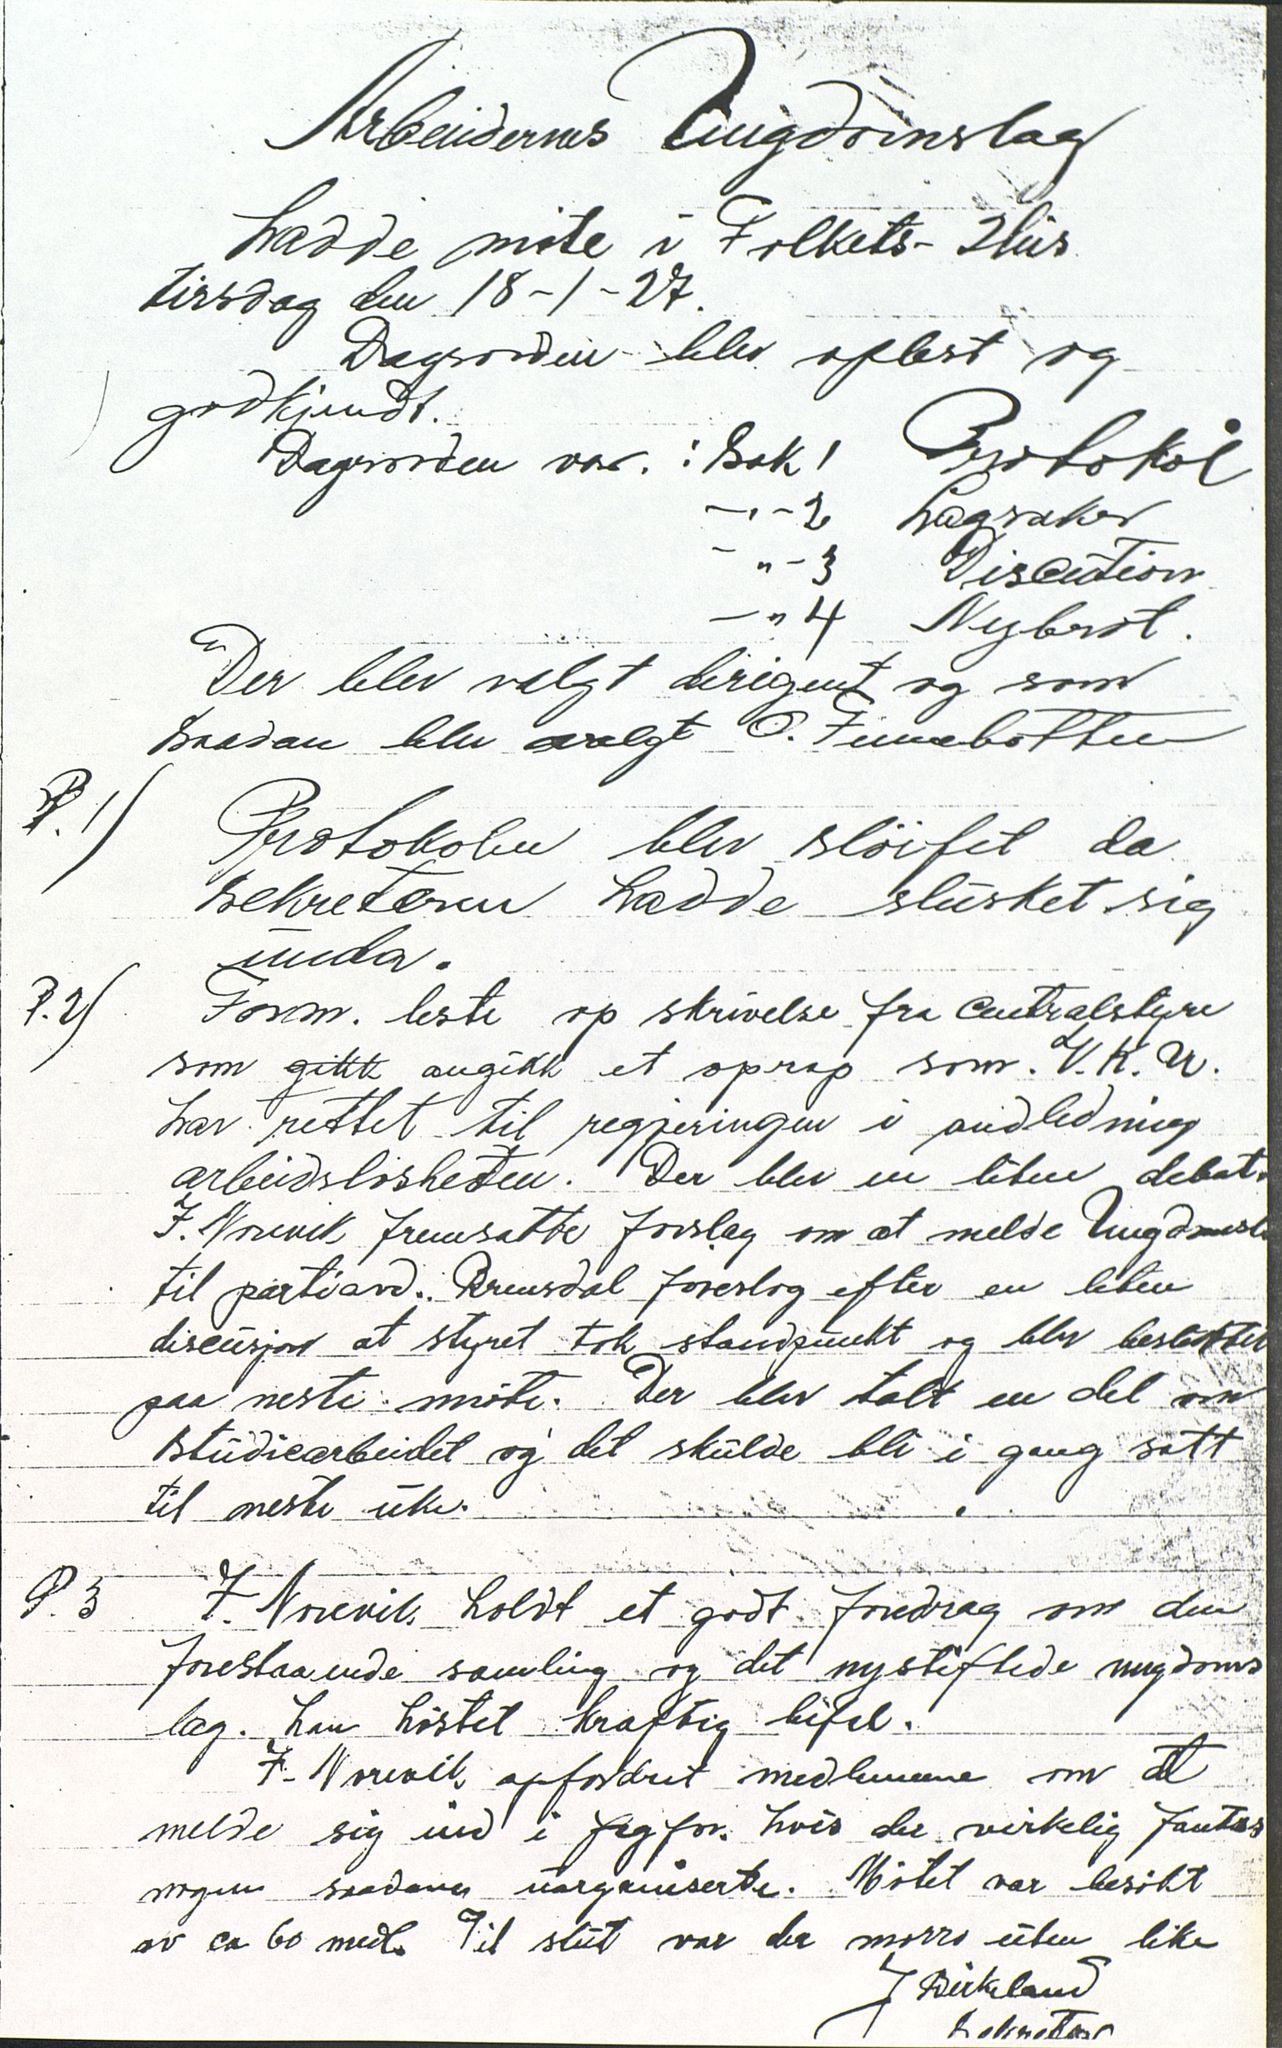 Arbeidernes Ungdomslag
hadde möte i Folkets-Hus
tirsdag den 18-1-27.
Dagsorden blev oplest og
godkjendt.
Dagsorden var. : Sak 1 Protokol
-"-2 Lagsaker
"-3 Discution
-"4 Nybrot.
Der blev valgt dirigent og som
saadan blev valgt O. Funnebotten
P. 1) Protokolen blev slöifet da
sekretæren hadde slusket sig
unda.
P. 2) Form. leste op skrivelse fra centralstyre
som gikk angikk et oprop som. V. K. U.
har rettet til regjeringen i andledning
arbeidslösheten. Der blev en liten debat.
F. Norevik fremsatte forslag om at melde Ungdomsl.
til partiavd.. Brunsdal foreslog efter en liten
discusjon at styret tok standpunkt og blev besluttet
paa neste möte. Der blev talt en del om
studiearbeidet og det skulde bli i gang satt
til neste uke.
P. 3 F. Norevik holdt et godt foredrag om den
forestaaende samling og det nystiftede ungdoms
lag. han höstet kraftig bifal.
F. Norevik opfordret medlemmene om at
melde sig ind i fagfor. hvis der virkelig fantes
nogen saadane uorganiserte. Mötet var besökt
av ca 60 medl. Til slut var der morro uten like
J Birkeland
Sekretær